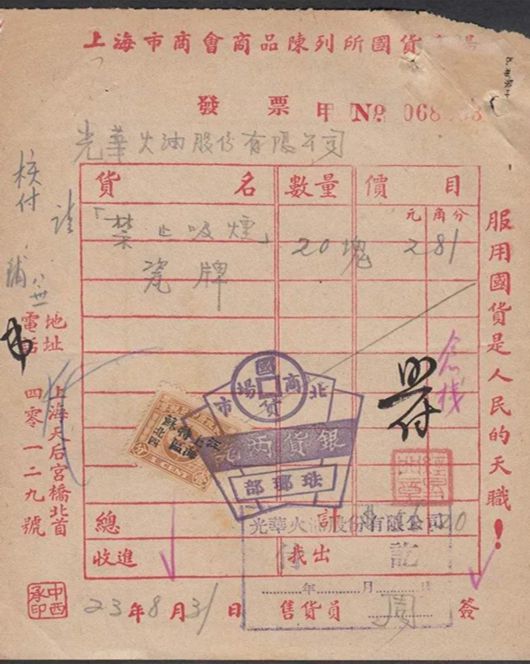 上海市商會商品陳列所國貨
發票 甲 No 068
光華火油股份有限公司
貨名 數量 價目
元 角 分
「禁止吸煙」
瓷牌 20塊 281
服用國貨是人民的天職！
核付
地址 上海天后宮橋北首
電話 四零一二九號
國貨商場
北市
銀貨兩訖
琺瑯部
1 CENT
照付
總計
光華火油股份有限公司
收進 找出
訖
年 月 日
23年8月31日 售貨員 周 簽
中西承印